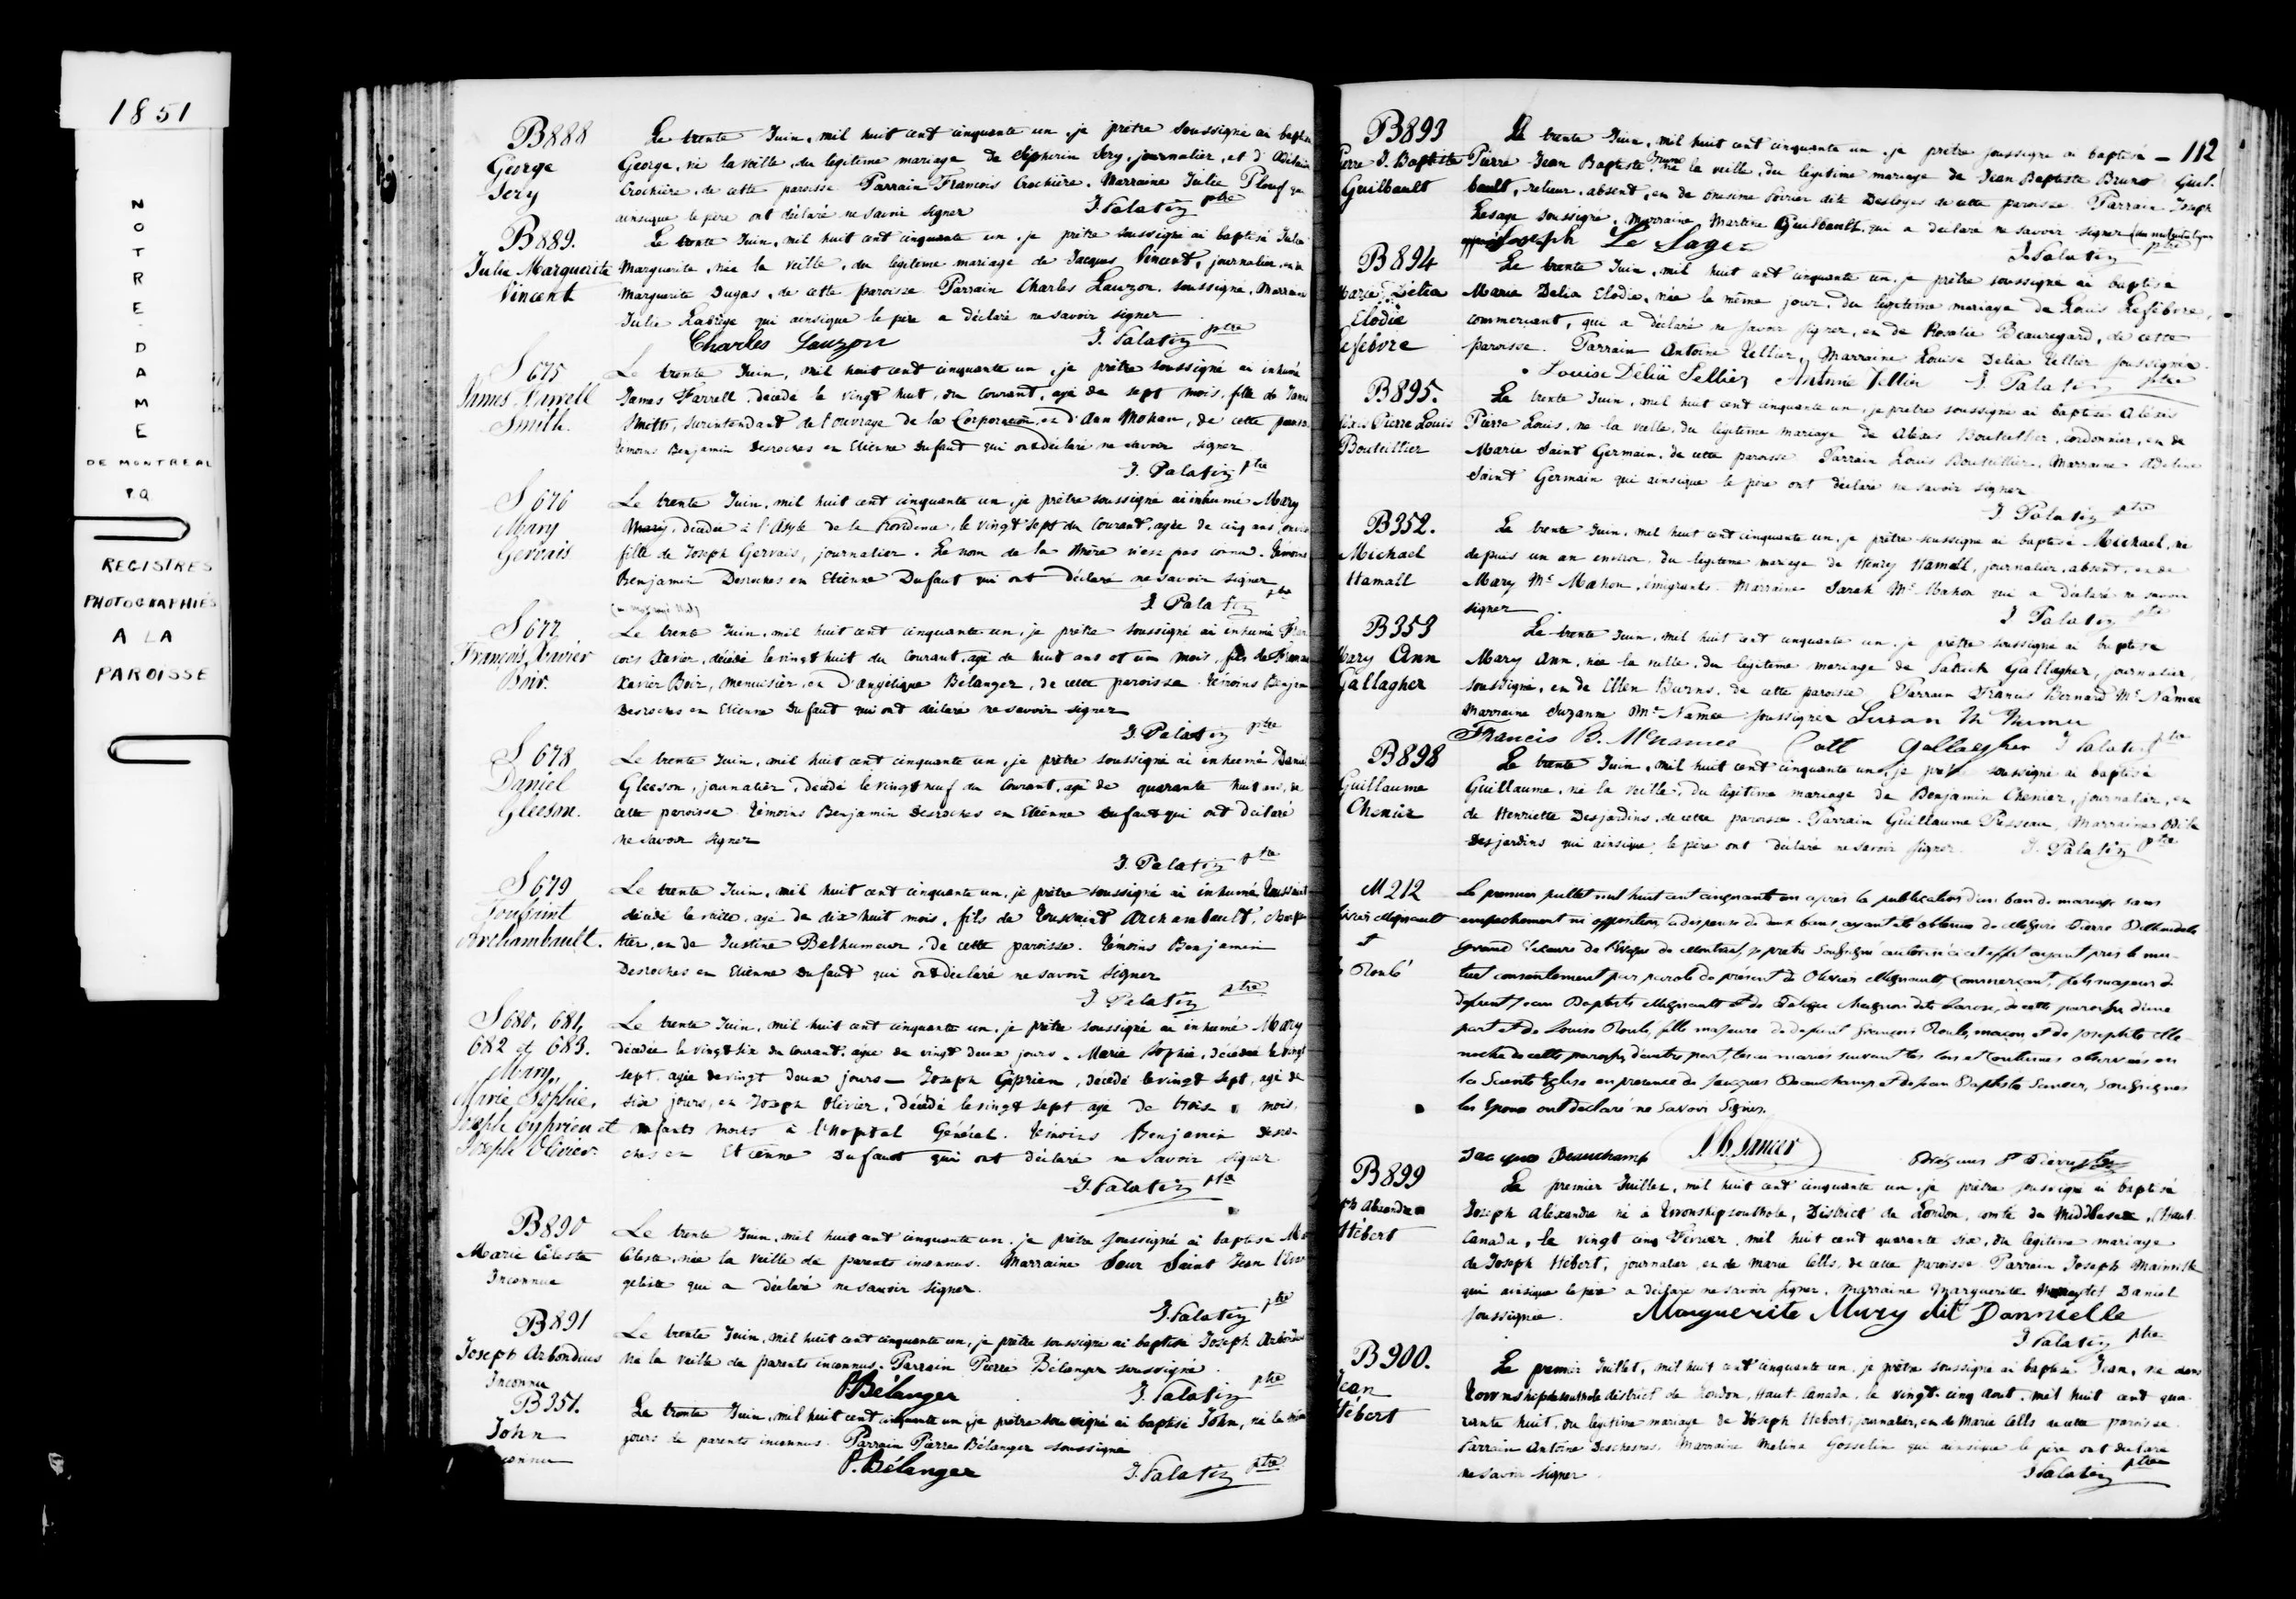 1851
NOTRE-DAME
DE MONTREAL
P.Q
REGISTRES
PHOTOGRAPHIES
A LA
PAROISSE
B888
George
Jery
Le trente Juin, mil huit cent cinquante un, je prêtre soussigné ai
George, né la veille, du légitime mariage de Jery, journalier, et d'
Crochière, de cette paroisse Parrain François Crochière, Marraine Julie Plouf
ainsique le père ont déclaré ne savoir signer
J. Palatin ptre
B889.
Julie Marguerite
Vincent
Le trente Juin, mil huit cent cinquante un, je prêtre soussigné ai baptisé Julie
Marguerite, née la veille, du légitime mariage de Jacques Vincent, journalier,
Marguerite Dugas, de cette paroisse Parrain Charles Lauzon, soussigné,
Julie qui ainsique le père a déclaré ne savoir signer
Charles Lauzon J. Palatin ptre
S 675
James Farrell
Smith.
Le trente Juin, mil huit cent cinquante un, je prêtre soussigné ai inhumé
James Farrell, décédé le vingt huit, du courant, agé de sept mois, fils de
Smith, Surintendant de l'ouvrage de la Corporation, et d'Ann Mohan, de cette
témoins Benjamin Desroches et Etienne Dufaut qui ont déclaré ne savoir signer
J. Palatin ptre
S 676
Mary
Gervais
Le trente Juin, mil huit cent cinquante un, je prêtre soussigné ai inhumé Mary
Mary, décédée à l'Asyle de la Providence, le vingt sept du courant, agée de cinq ans,
fille de Joseph Gervais, journalier. Le nom de la Mère n'est pas connu. témoins
Benjamin Desroches et Etienne Dufaut qui ont déclaré ne savoir signer
J. Palatin ptre
S 677
François Xavier
Boir.
Le trente Juin, mil huit cent cinquante un, je prêtre soussigné ai inhumé
cois Xavier, décédé le vingt huit du courant, agé de huit ans et un mois, fils de
Xavier Boir, menuisier, et d'Angélique Bélanger, de cette paroisse témoins
Desroches et Etienne Dufaut qui ont déclaré ne savoir signer
J. Palatin ptre
S 678
Daniel
Gleeson.
Le trente Juin, mil huit cent cinquante un, je prêtre soussigné ai inhumé
Gleeson, journalier, décédé le vingt neuf du courant, agé de quarante huit ans, de
cette paroisse témoins Benjamin Desroches et Etienne Dufaut qui ont déclaré
ne savoir signer
J. Palatin ptre
S 679
Toussaint
Archambault.
Le trente Juin, mil huit cent cinquante un, je prêtre soussigné ai inhumé Toussaint
décédé la veille, agé de dix huit mois, fils de Toussaint Archambault,
tier, et de Justine Belhumeur, de cette paroisse. témoins Benjamin
Desroches et Etienne Dufaut qui ont déclaré ne savoir signer
J. Palatin ptre
S 680, 681,
682 et 683.
Mary,
Marie Sophie,
Joseph Cyprien et
Joseph Olivier
Le trente Juin, mil huit cent cinquante un, je prêtre soussigné ai inhumé Mary
décédée le vingt six du courant, agée de vingt deux jours - Marie Sophie, décédée le vingt
sept, agée de vingt deux jours - Joseph Cyprien, décédé le vingt sept, agé de
six jours, et Joseph Olivier, décédé le vingt sept agé de trois mois,
enfants morts à l'hopital Général. témoins Benjamin Desro-
ches et Etienne Dufaut qui ont déclaré ne savoir signer
J. Palatin ptre
B890
Marie Céleste
Inconnue
Le trente Juin, mil huit cent cinquante un, je prêtre soussigné ai baptisé
Céleste, née la veille de parents inconnus. Marraine Sœur Saint Jean
géliste qui a déclaré ne savoir signer.
J. Palatin ptre
B891
Joseph Arbondius
Inconnu
Le trente Juin, mil huit cent cinquante un, je prêtre soussigné ai baptisé Joseph
né la veille de parents inconnus. Parrain Pierre Bélanger soussigné
P. Bélanger J. Palatin ptre
B351.
John
Le trente Juin, mil huit cent cinquante un, je prêtre soussigné ai baptisé John, né
jours de parents inconnus. Parrain Pierre Bélanger soussigné
P. Bélanger J. Palatin ptre
112
B893
Pierre J. Baptiste
Guilbault
Le trente Juin, mil huit cent cinquante un, je prêtre soussigné ai baptisé
Pierre Jean Baptiste né la veille, du légitime mariage de Jean Baptiste Bruno Guil-
bault, relieur, absent, et de Onésime Poirier dite Desloges de cette paroisse. Parrain Joseph
Lesage soussigné, Marraine Martine Guilbault, qui a déclaré ne savoir signer
Joseph Le Sage J. Palatin ptre
B894
Marie Délia
Elodie
Lefebvre
Le trente Juin, mil huit cent cinquante un, je prêtre soussigné ai baptisé
Marie Delia Elodie, née le même jour, du légitime mariage de Louis Lefebvre,
commerçant, qui a déclaré ne savoir signer, et de Rosalie Beauregard, de cette
paroisse. Parrain Antoine Tellier, Marraine Louise Delia Tellier soussignés
Louise Délia Tellier Antoine Tellier J. Palatin ptre
B895.
Alexis Pierre Louis
Bouteillier
Le trente Juin, mil huit cent cinquante un, je prêtre soussigné ai baptisé Alexis
Pierre Louis, né la veille, du légitime mariage de Alexis Bouteillier, cordonnier, et de
Marie Saint Germain, de cette paroisse Parrain Louis Bouteillier, Marraine Adeline
Saint Germain qui ainsique le père ont déclaré ne savoir signer
J. Palatin ptre
B352.
Michael
Hamall
Le trente Juin, mil huit cent cinquante un, je prêtre soussigné ai baptisé Michael, né
depuis un an environ, du légitime mariage de Henry Hamall, journalier, absent, et de
Mary Mc Mahon, émigrants. Marraine Sarah Mc Mahon qui a déclaré ne savoir
signer J. Palatin ptre
B353
Mary Ann
Gallagher
Le trente Juin, mil huit cent cinquante un, je prêtre soussigné ai baptisé
Mary Ann, née la veille, du légitime mariage de Patrick Gallagher, journalier,
soussigné, et de Ellen Burns, de cette paroisse Parrain Francis Bernard Mc Namee
Marraine Suzanne Mc Namee soussignés
Francis B. McNamee Gallagher J. Palatin ptre
B898
Guillaume
Chenier
Le trente Juin, mil huit cent cinquante un, je prêtre soussigné ai baptisé
Guillaume, né la veille, du légitime mariage de Benjamin Chenier, journalier, et
de Henriette Desjardins, de cette paroisse. Parrain Guillaume, Marraine Odile
Desjardins qui ainsique le père ont déclaré ne savoir signer. J. Palatin ptre
M 212
Olivier Mignault
et
Roulé
Le premier juillet mil huit cent cinquante un après la publication d'un ban de mariage sans
empêchement ni opposition, la dispense de deux bans ayant été obtenue de Messire Pierre
Grand Vicaire de l'Evêque de Montréal, je prêtre soussigné autorisé à cet effet ayant pris le mu-
tuel consentement par parole de présent de Olivier Mignault, commerçant, fils majeur de
défunt Jean Baptiste Mignault et de, de cette paroisse d'une
part et de Louise Roulé, fille majeure de défunt François Roulé, maçon, et de Josephte
de cette paroisse, d'autre part, les ai mariés suivant les lois et coutumes observées en
la Sainte Eglise en présence de Jacques Beauchamp et de Jean Baptiste Sancer, soussignés
les époux ont déclaré ne savoir signer.
Jacques Beauchamp J. B. Sancer
B899
Joseph Alexandre
Hébert
Le premier Juillet, mil huit cent cinquante un, je prêtre soussigné ai baptisé
Joseph Alexandre né à Townshipsouthole, District de London, comté de Middlesex, Haut
Canada, le vingt cinq Février, mil huit cent quarante six, du légitime mariage
de Joseph Hébert, journalier, et de Marie Cells, de cette paroisse Parrain Joseph
qui ainsique le père a déclaré ne savoir signer, Marraine Marguerite Daniel
soussignée. Marguerite Mury dit Dannielle
J. Palatin ptre
B900.
Jean
Hébert
Le premier Juillet, mil huit cent cinquante un, je prêtre soussigné ai baptisé Jean, né dans
Townshipsouthole district de London, Haut Canada, le vingt cinq Aout, mil huit cent qua-
rante huit, du légitime mariage de Joseph Hébert, journalier, et de Marie Cells de cette paroisse.
Parrain Antoine Deschesnes, Marraine Melina Gosselin qui ainsique le père ont déclaré
ne savoir signer J. Palatin ptre